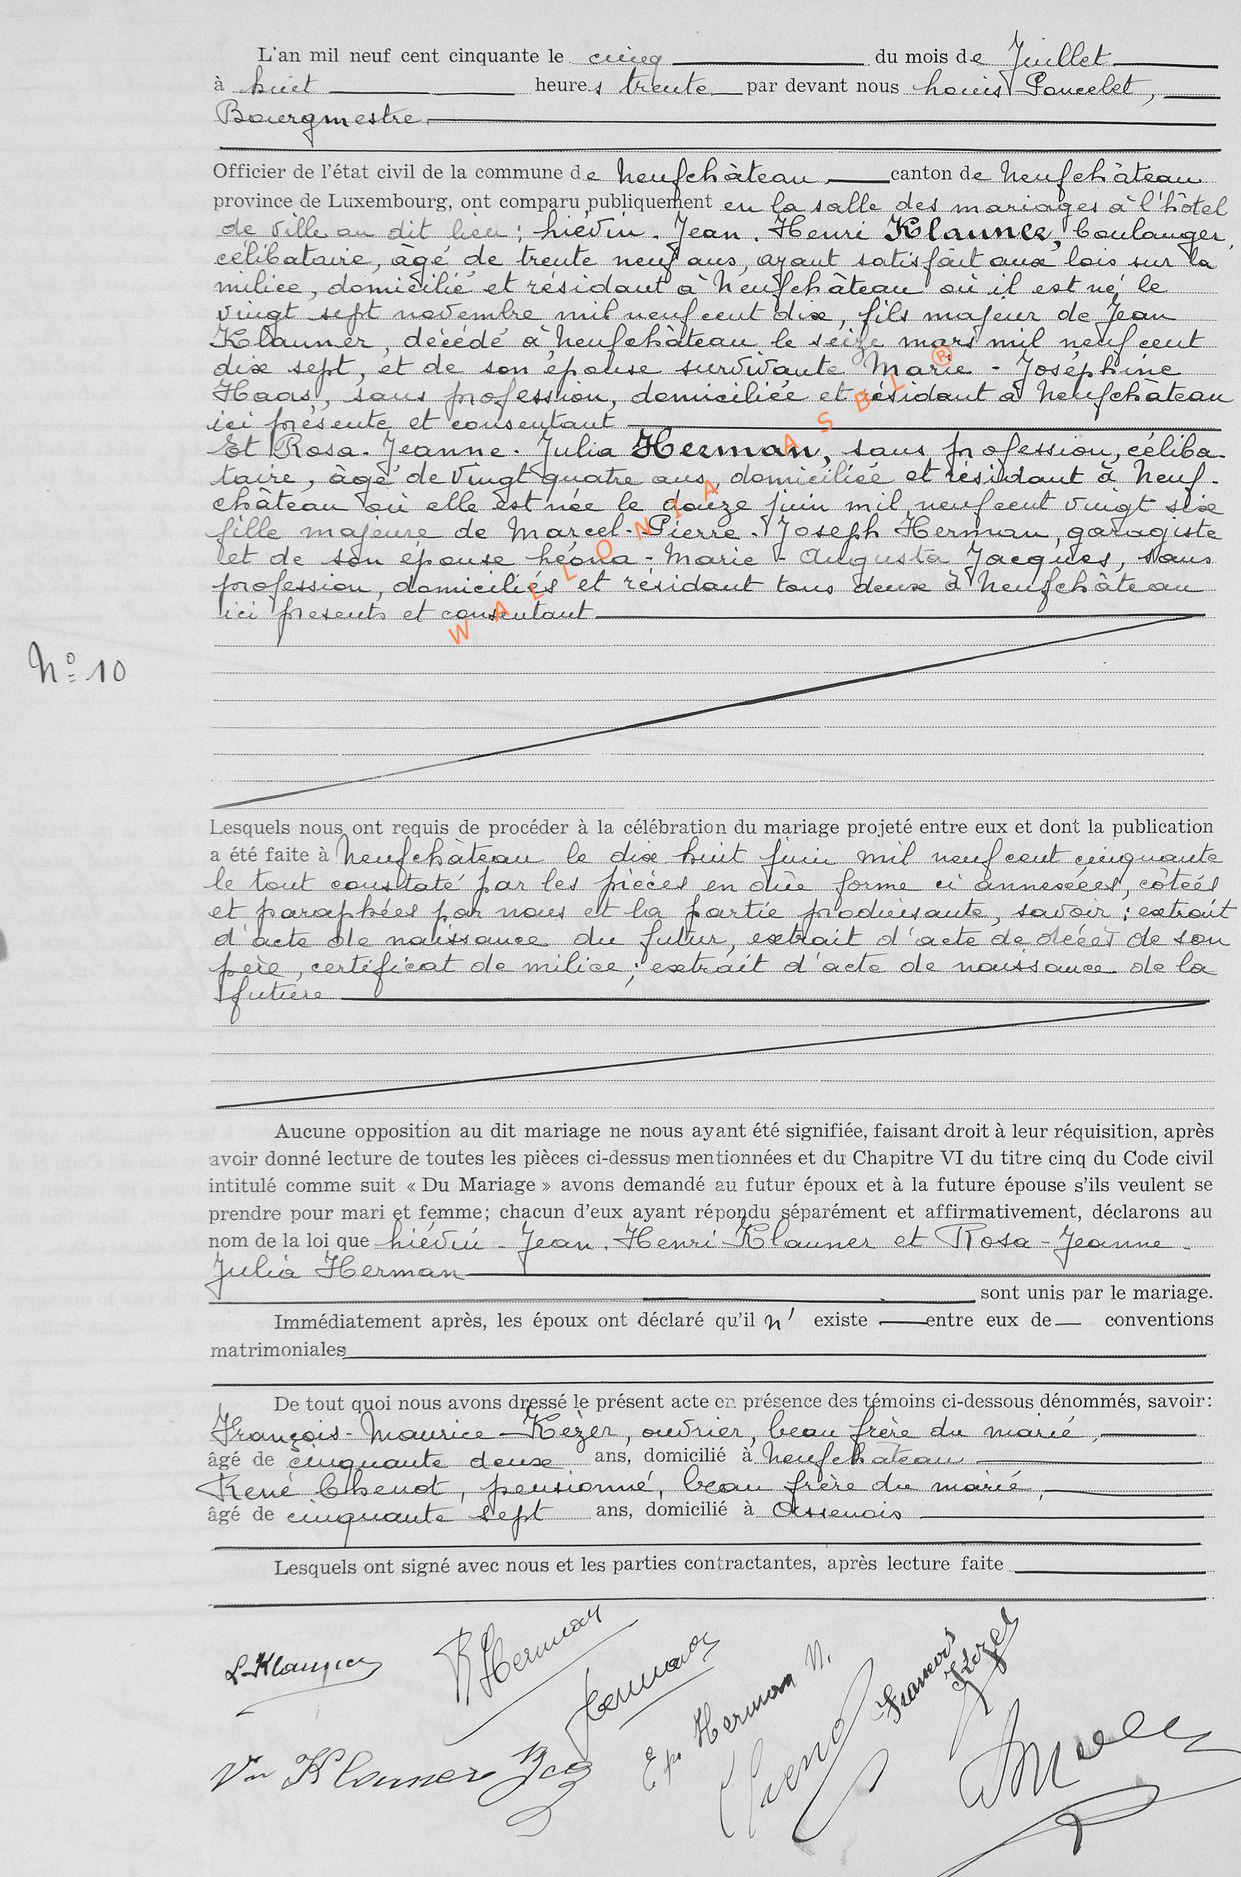 L'an mil neuf cent cinquante le cinq du mois de Juillet
à huit heures trente par devant nous Louis Poncelet,
Bourgmestre
Officier de l'état civil de la commune de Neufchâteau canton de Neufchâteau
province de Luxembourg, ont comparu publiquement en la salle des mariages à l'hôtel
de ville au dit lieu : Liévin - Jean - Henri Klauner, boulanger,
célibataire, âgé de trente neuf ans, ayant satisfait aux lois sur la
milice, domicilié et résidant à Neufchâteau où il est né le
vingt sept novembre mil neuf cent dix, fils majeur de Jean
Klauner, décédé à Neufchâteau le seize mars mil neuf cent
dix sept, et de son épouse survivante Marie - Joséphine
Haas, sans profession, domiciliée et résidant à Neufchâteau
ici présente et consentant
Et Rosa - Jeanne - Julia Herman, sans profession, céliba-
taire, âgé de vingt quatre ans, domiciliée et résidant à Neuf-
château où elle est née le douze juin mil neuf cent vingt six
fille majeure de Marcel - Pierre - Joseph Herman, garagiste
et de son épouse Léona - Marie - Augusta Jacques, sans
profession, domiciliés et résidant tous deux à Neufchâteau
ici présents et consentant
WALLONIA ASBL ®
N° 10
Lesquels nous ont requis de procéder à la célébration du mariage projeté entre eux et dont la publication
a été faite à Neufchâteau le dix huit juin mil neuf cent cinquante
le tout constaté par les pièces en due forme ci annexées, côtées
et paraphées par nous et la partie produisante, savoir : extrait
d'acte de naissance du futur, extrait d'acte de décès de son
père, certificat de milice ; extrait d'acte de naissance de la
future
Aucune opposition au dit mariage ne nous ayant été signifiée, faisant droit à leur réquisition, après
avoir donné lecture de toutes les pièces ci-dessus mentionnées et du Chapitre VI du titre cinq du Code civil
intitulé comme suit « Du Mariage » avons demandé au futur époux et à la future épouse s'ils veulent se
prendre pour mari et femme; chacun d'eux ayant répondu séparément et affirmativement, déclarons au
nom de la loi que Liévin - Jean - Henri Klauner et Rosa - Jeanne -
Julia Herman
sont unis par le mariage.
Immédiatement après, les époux ont déclaré qu'il n' existe entre eux de conventions
matrimoniales
De tout quoi nous avons dressé le présent acte en présence des témoins ci-dessous dénommés, savoir:
François - Maurice - Kèzer, ouvrier, beau frère du marié,
âgé de cinquante deux ans, domicilié à Neufchâteau
René Chenot, pensionné, beau frère du marié,
âgé de cinquante sept ans, domicilié à Assenois
Lesquels ont signé avec nous et les parties contractantes, après lecture faite
L. Klauner
R Herman
Herman
Ep. Herman
Chenot
Kezer
Vve Klauner